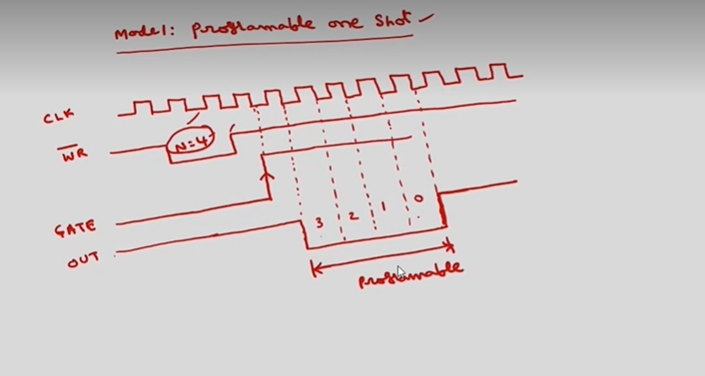 Mode1: Programable one Shot
CLK
WR
N=4
GATE
OUT
3 2 1 0
Programable